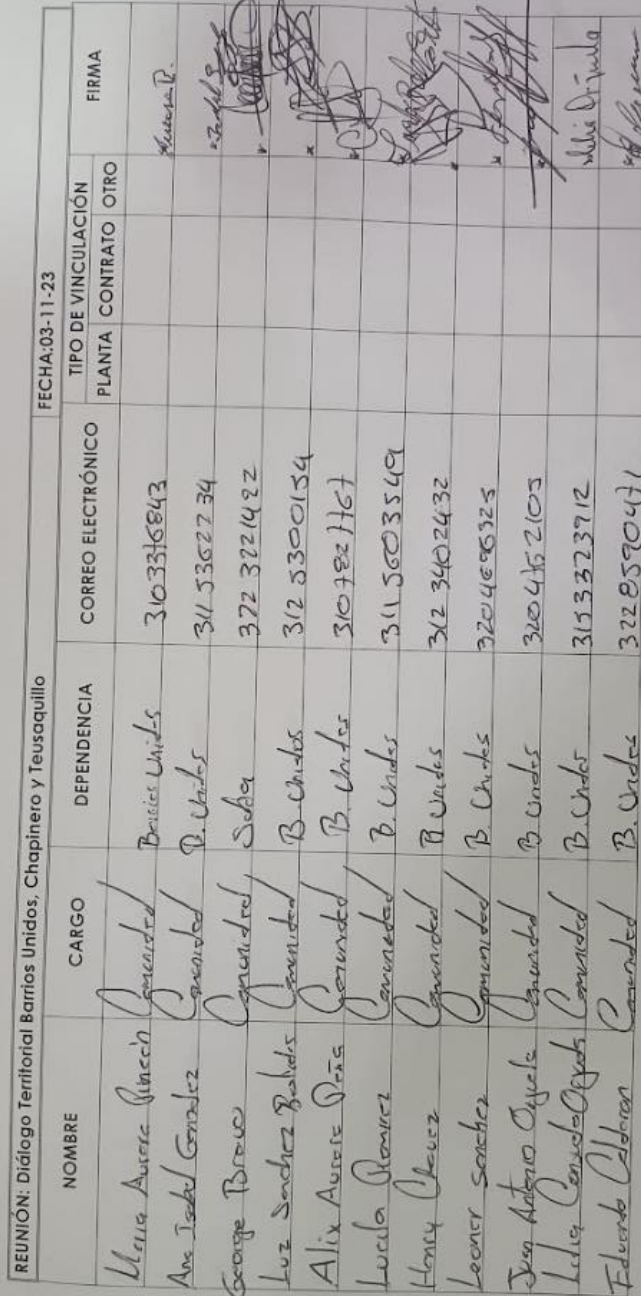 REUNIÓN: Diálogo Territorial Barrios Unidos, Chapinero y Teusaquillo FECHA:03-11-23
NOMBRE CARGO DEPENDENCIA CORREO ELECTRÓNICO TIPO DE VINCULACIÓN FIRMA
PLANTA CONTRATO OTRO
Maria Aurora Comunidad Barrios Unidos 3103376843
Ana Isabel Gonzalez Comunidad B. Unidos 311 5362734
George Bravo Comunidad Suba 372 3221422
Luz Sanchez Comunidad B. Unidos 312 5300154
Alix Aurora Peña Comunidad B. Unidos 3107827767
Lucila Ramirez Comunidad B. Unidos 311 5603549
Henry Chavez Comunidad B Unidos 312 3402432
Leonor Sanchez Comunidad B Unidos 3204696325
Juan Antonio Comunidad B Unidos 3204752105
Lidia Consuelo Comunidad B. Unidos 3153323912
Eduardo Calderon Comunidad B. Unidos 3228590471